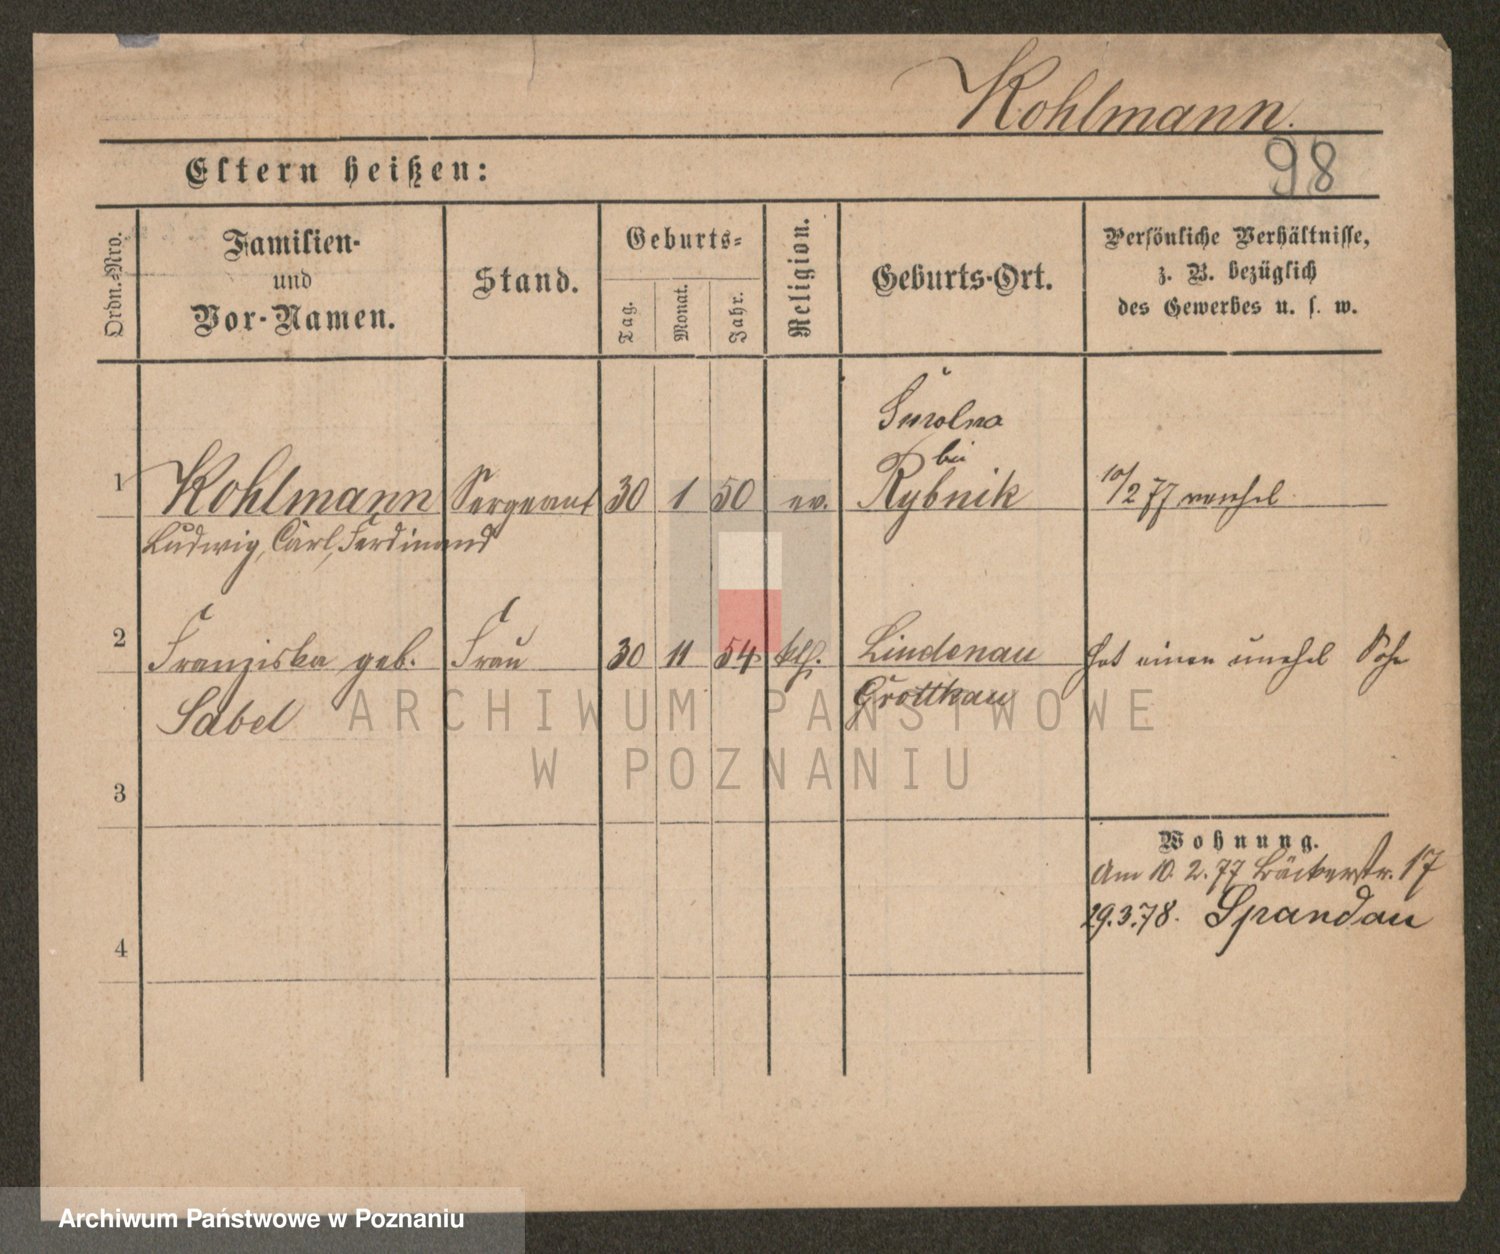 Kohlmann.
98
Eltern heißen:
Ordn.-Nro.
Familien-
und
Vor-Namen.
Stand.
Geburts-
Tag.
Monat.
Jahr.
Religion.
Geburts-Ort.
Persönliche Verhältnisse,
z. B. bezüglich
des Gewerbes u. s. w.
1
Kohlmann
Ludwig, Carl, Ferdinand
Sergeant
30 1 50
ev.
Smolna
bei
Rybnik
10/2 77
2
Franziska geb.
Sabel
Frau
30 11 54
kth.
Lindenau
Grottkau
hat einen unehel Sohn
3
4
Wohnung.
Am 10. 2. 77 Bäckerstr. 17
29.3.78. Spandau
ARCHIWUM PAŃSTWOWE
W POZNANIU
Archiwum Państwowe w Poznaniu